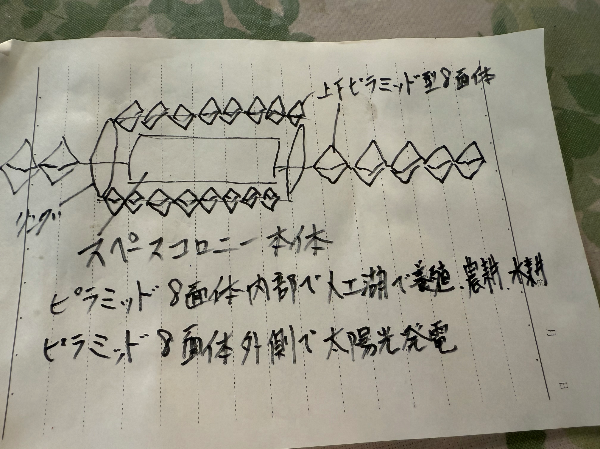 上下ピラミッド型8面体
リング
スペースコロニー本体
ピラミッド8面体内部で人工湖で養殖、農耕、水耕
ピラミッド8面体外側で太陽光発電